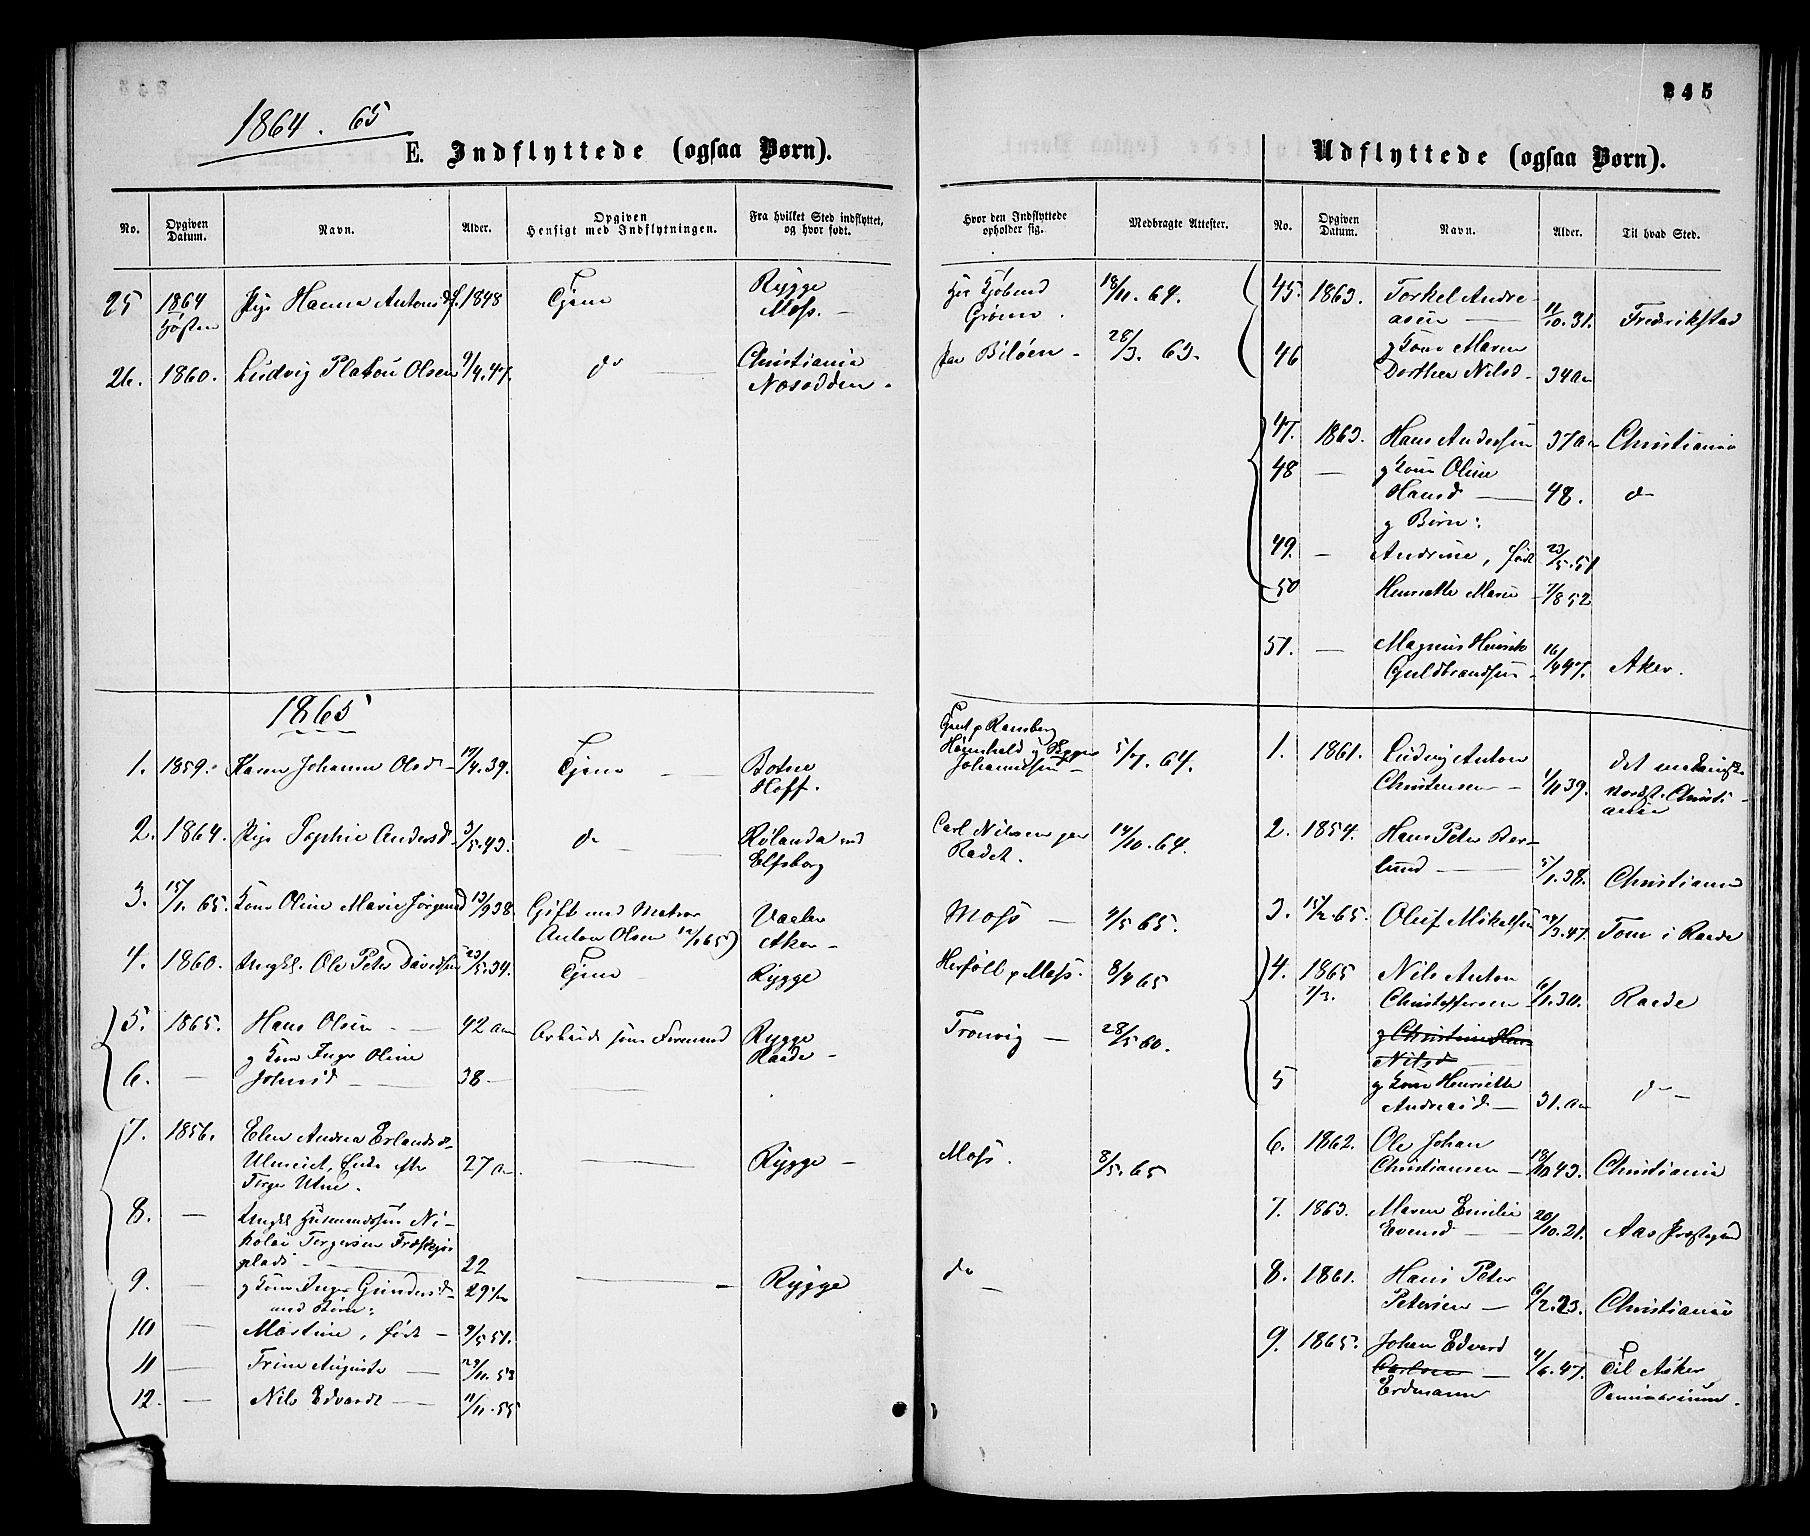 245
1864. 65
E. Indflyttede (ogsaa Børn).
No.
Opgiven Datum.
Navn.
Alder.
Opgiven Hensigt med Indflytningen.
Fra hvilket Sted indflyttet, og hvor født.
Hvor den Indflyttede opholder sig.
Medbragte Attester.
25 1864 Pige Hanna Antonsd f. 1848 Tjene Rygge 18/11. 64.
Høsten Moss. Grønn.
26. 1860. Ludvig Platou Olsen 9/4.47. do Christiania Biløen 28/3. 63.
Nesodden
1865
1. 1859. Karen Johanne Olsd 17/4.39. Tjene Botne Johannesen 5/7. 64.
Hoff.
2. 1864. Pige Sophie Andersd 3/5.43. do Rølanda ved Carl Nilsen 14/10. 64.
Elfsborg Rådet.
3. 15/1. 65. Kone Oline Marie Jørgensd 13/9 38. Gift med Matros Vaaler Moss 4/5 65.
Anton Olsen 12/1 65) Aker
4. 1860. Ungkl. Ole Peter Davidsen 23/5.34. Tjene Rygge Herføll p Moss. 8/4 65
5. 1865. Hans Olsen 42 aar Arbeide som Formand Rygge Tronvig 28/5 60.
g Kone Inger Oline Raade
6. — Johnsd 38 —
7. 1856. Elen Andrea Erlandsd
27 a Rygge Moss. 8/5. 65
8. — Ungkl Husmandssøn Ni-
kolai Torgersen
plads 22
9. — g Kone Inger Gundersd 29 1/2 Rygge do
med Børn:
10 — Martine, født 9/5 51.
11 — Trine Auguste 29/11. 53
12. — Nils Edvardt 11/11. 55
Udflyttede (ogsaa Børn).
No.
Opgiven Datum.
Navn.
Alder.
Til hvad Sted.
45. 1863. Torkel Andre-
asen 11/10. 31. Fredrikstad
46 g Kone Maren
Dorthea Nilsd 34 aar
47. 1863. Hans Andersen 37 aar Christiania
48 — g Kone Oline
Hansd 48. do
g Børn:
49. — Andrine, født 23/5. 51
50 Henriette Marie 7/8 52
51. — Magnus Henrik
Guldbrandsen 16/4 47. Aker.
1. 1861. Ludvig Anton det mekaniske
Christensen 1/11 39. Værkst. Christi-
ania
2. 1854. Hans Peter Ber-
lund 5/1. 38. Christiania
3. 15/2. 65. Oluf Mikelsen 24/3. 47. Tom i Raade
4. 1865 Nils Anton
1/3. Christoffersen 6/11. 30. Raade
g Christine
Nilsd
5 g Kone Henriette
Andreasd 31. aar do
6. 1862. Ole Johan
Christiansen 18/10 43. Christiania
7. 1863. Maren Emilie
Evensd 20/10. 21. Aas Præstegjeld
8. 1861. Hans Peter
Petersen 6/2. 23. Christiania
9. 1865. Johan Edvard
Carlsen 4/6. 47. Til Asker
Erdmann Seminarium.